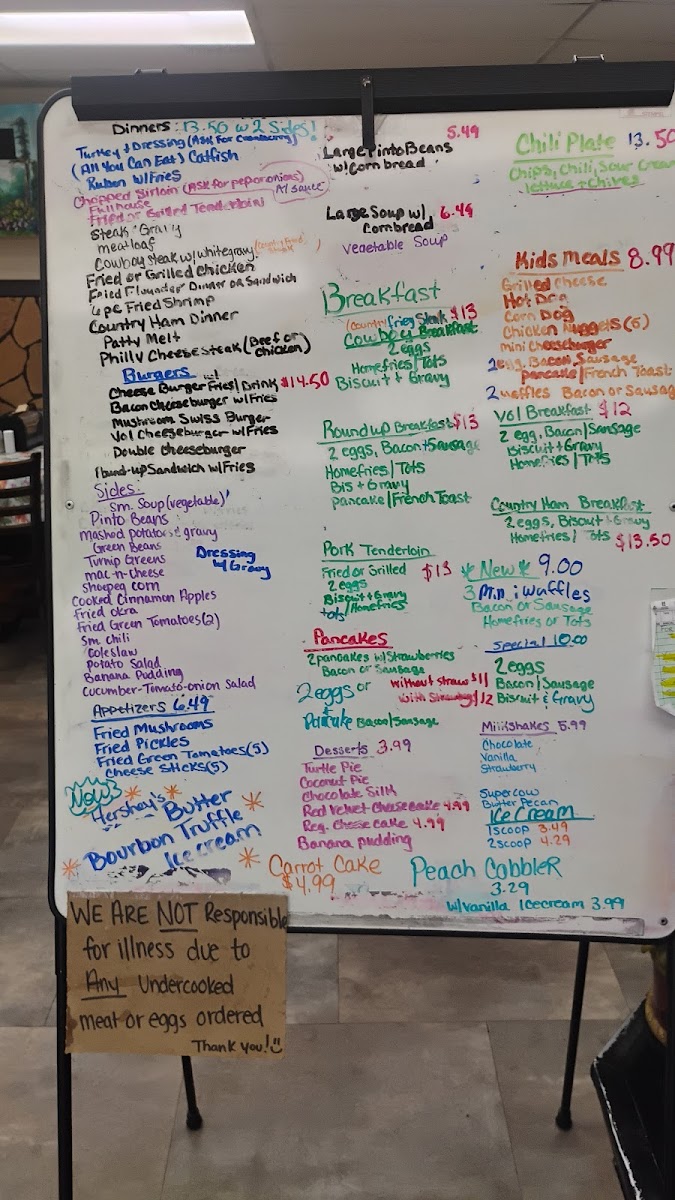 Dinners: 13.50 w 2 Sides!
Turkey & Dressing (Ask For Cranberry)
(All You Can Eat) Catfish
Ruben w/Fries
Chopped Sirloin (ASK for peporonions)
A1 sauce
Fullhouse
Fried or Grilled Tenderloin
Steak & Gravy
meatloaf
Cowboy Steak w/ white gravy
Fried or Grilled Chicken
Fried Flounder Dinner or Sandwich
Fried Shrimp
Country Ham Dinner
Patty Melt
Philly Cheese Steak (Beef or chicken)
Burgers
Cheese Burger Fries | Drink $14.50
Bacon Cheeseburger w/Fries
Mushroom Swiss Burger
Vol Cheeseburger w/Fries
Double Cheeseburger
Round-up Sandwich w/ Fries
Sides:
Sm. Soup (vegetable)
Pinto Beans
mashed potatoes & gravy
Green Beans
Turnip Greens
mac-n-cheese
Shoepeg corn
Cooked Cinnamon Apples
Fried okra
Fried Green Tomatoes (2)
Sm. chili
Coleslaw
Potato Salad
Banana Pudding
Cucumber-Tomato-onion Salad
Dressing
& Gravy
Appetizers 6.49
Fried Mushrooms
Fried Pickles
Fried Green Tomatoes (5)
Cheese Sticks (5)
New
Hershey's Butter
Bourbon Truffle
Ice cream
Large Pinto Beans 5.49
w/ Corn bread
Large Soup w/ 6.49
Cornbread
Vegetable Soup
Breakfast
(country fried Steak $13
Cowboy Breakfast
2 eggs
Homefries | Tots
Biscuit + Gravy
Roundup Breakfast $13
2 eggs, Bacon + Sausage
Homefries | Tots
Bis + Gravy
pancake | French Toast
Pork Tenderloin
Fried or Grilled $13
2 eggs
Biscuit + Gravy
tots | Homefries
Pancakes
2 pancakes w/ Strawberries
Bacon or Sausage
2 eggs or without straw $11
With Strawberry $12
Pancake Bacon/Sausage
Desserts 3.99
Turtle Pie
Coconut Pie
Chocolate Silk
Red Velvet Cheesecake 4.99
Reg. Cheese cake 4.99
Banana pudding
Carrot Cake
$4.99
Chili Plate 13.50
Chips, Chili, Sour Cream
lettuce + Chives
Kids Meals 8.99
Grilled Cheese
Hot Dog
Corn Dog
Chicken Nuggets (6)
mini Cheeseburger
egg, Bacon, Sausage
pancake | French Toast
2 waffles Bacon or Sausage
Vol Breakfast $12
2 egg, Bacon/Sausage
Biscuit + Gravy
Homefries | Tots
Country Ham Breakfast
2 eggs, Biscuit + Gravy
Homefries | Tots $13.50
*New* 9.00
3 Mini Waffles
Bacon or Sausage
Homefries or Tots
Special 10.00
2 eggs
Bacon | Sausage
Biscuit & Gravy
Milkshakes 5.99
Chocolate
Vanilla
Strawberry
Supercow
Butter Pecan
Ice Cream
1 scoop 3.49
2 scoop 4.29
Peach Cobbler
3.29
w/ vanilla Icecream 3.99
WE ARE NOT Responsible
for illness due to
Any undercooked
meat or eggs ordered
Thank you!